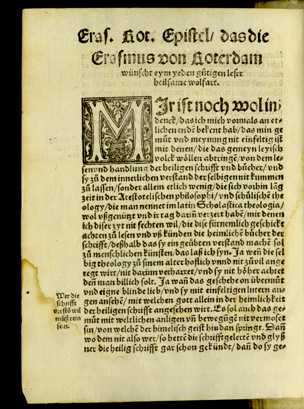 Eras. Rot. Epistel / das die
Erasmus von Roterdam
wünscht eym yeden gütigen leser
heilsame wolfart.
MIr ist noch wol in
denck / das ich mich vormals an et
lichen ende bekent hab / das min ge
müt vnd meynung nit einfeltig ist
mit denen / die das gemeyn leyisch
volck wöllen abtringē / von dem le
sen vnd handlung der heiligen schrifft vnd bücher / vnd
sy zu dem innerlichen verstand der selbigen nit kummen
zu lassen / sonder allem etlich wenig / die sich vorhin lāg
zeit in der Aestotelischen philosophi / vnd schülische the
ology / die man nennet im latin Scholastica theologia /
wol vßgenützt vnd ir tag darin verzert habē / mit denen
ich diser zyt nit fechten wil / die die fürnemlich geschickt
achten zu lesen vnd vß künden die heimliche bücher der
schrifft / deßhalb das sy ein geübten verstand machē sol
zu menschlichen künsten. Das laß ich syn. Ja wen die sel
big theology zu jrem alter hoffich vnd nit zuuil ange
regt wirt / nit darum verharret / vnd sy nit höher achtet
den man billich solt. Ja wan das geschehe on übermüt
vnd eigne blinde lieb / vnd sy mit einfeltigen lutern au
gen ansehē / mit welchen gott allein in der heimlicheit
der heiligen schrifft angesehen wirt. Es sol auch das ge
müt mit weltlichen anligen vn bewegūge nit vermoset
sin / von welchē der himelisch geist hin dan springt. Dan
wo dem nit also wer / so hette die schrifftgelerte vnd glyß
ner die heilig schrifft gar schon gekündt / dan do sy ge-
Wer die
schrifft
verstō wil
müß rein
sein.